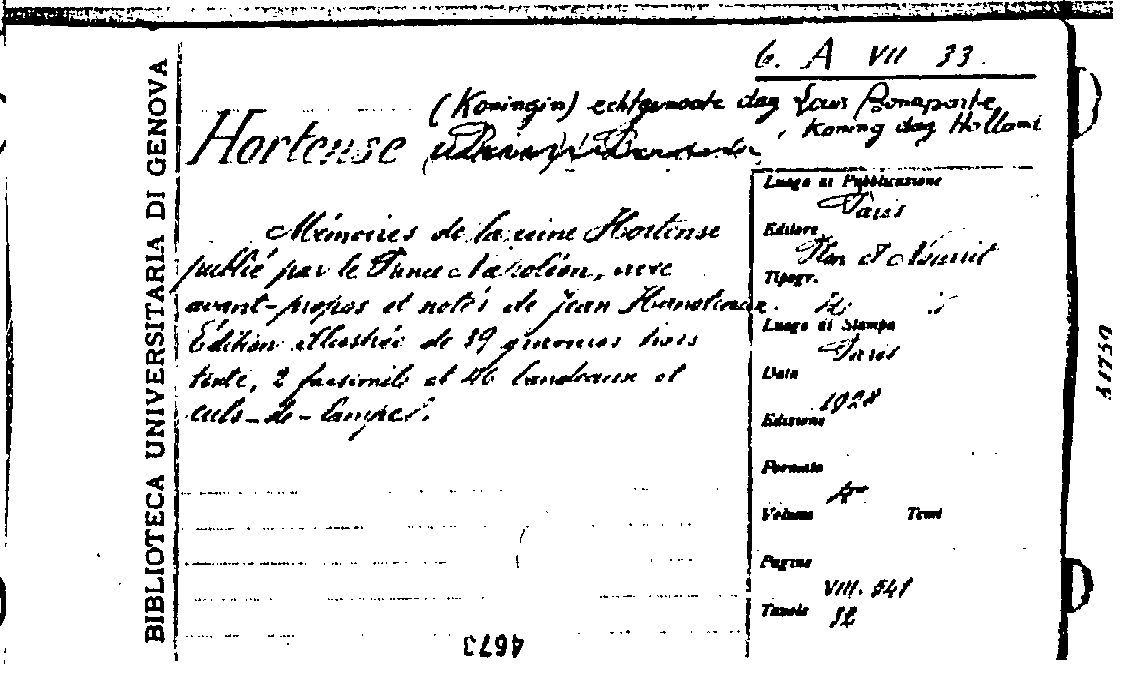 6. A VII 33.
(Koningin) echtgenoote dag Louis Bonaparte
, Koning dag Holland
Hortense
BIBLIOTECA UNIVERSITARIA DI GENOVA
Mémoires de la reine Hortense
publié par le Prince Napoléon, avec
avant-propos et notes de Jean Hanoteaux.
Édition illustrée de 39 gravures hors
texte, 2 facsimilé et 46 bandeaux et
culs-de-lampes.
Luogo di Pubblicazione
Paris
Editore
Plon et Nourrit
Tipogr.
Id
Luogo di Stampa
Paris
Data
1928
Edizione
Formato
Volume Tomi
Pagine
VIII. 341
Tavole
32
4673